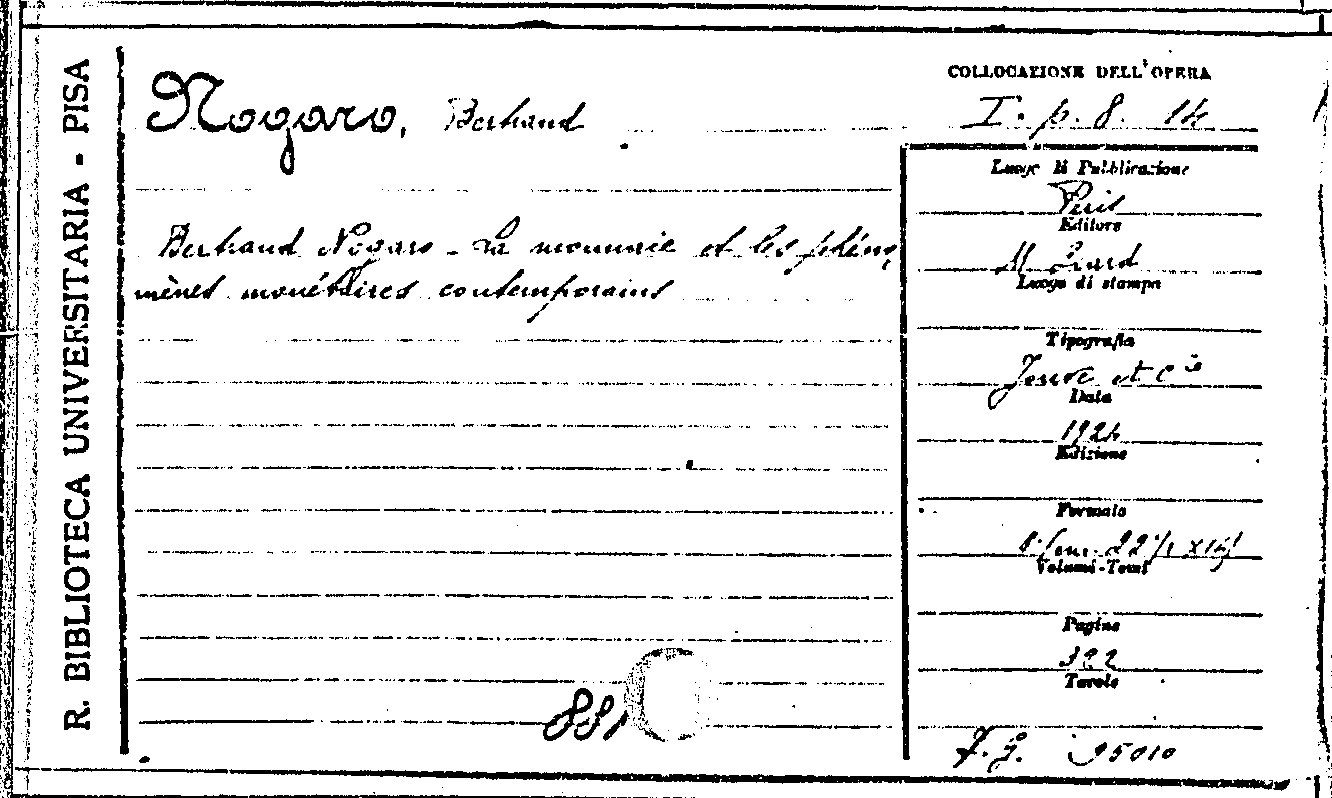 R. BIBLIOTECA UNIVERSITARIA - PISA
Nogaro, Bertrand
Bertrand Nogaro - La monnaie et les phéno
mènes monétaires contemporains
881
COLLOCAZIONE DELL'OPERA
I. p. 8. 14
Luogo di Pubblicazione
Paris
Editore
M. Giard
Luogo di stampa
Tipografia
Jouve et Cie
Data
1924
Edizione
Formato
Volumi-Tomi
Pagine
322
Tavole
95010